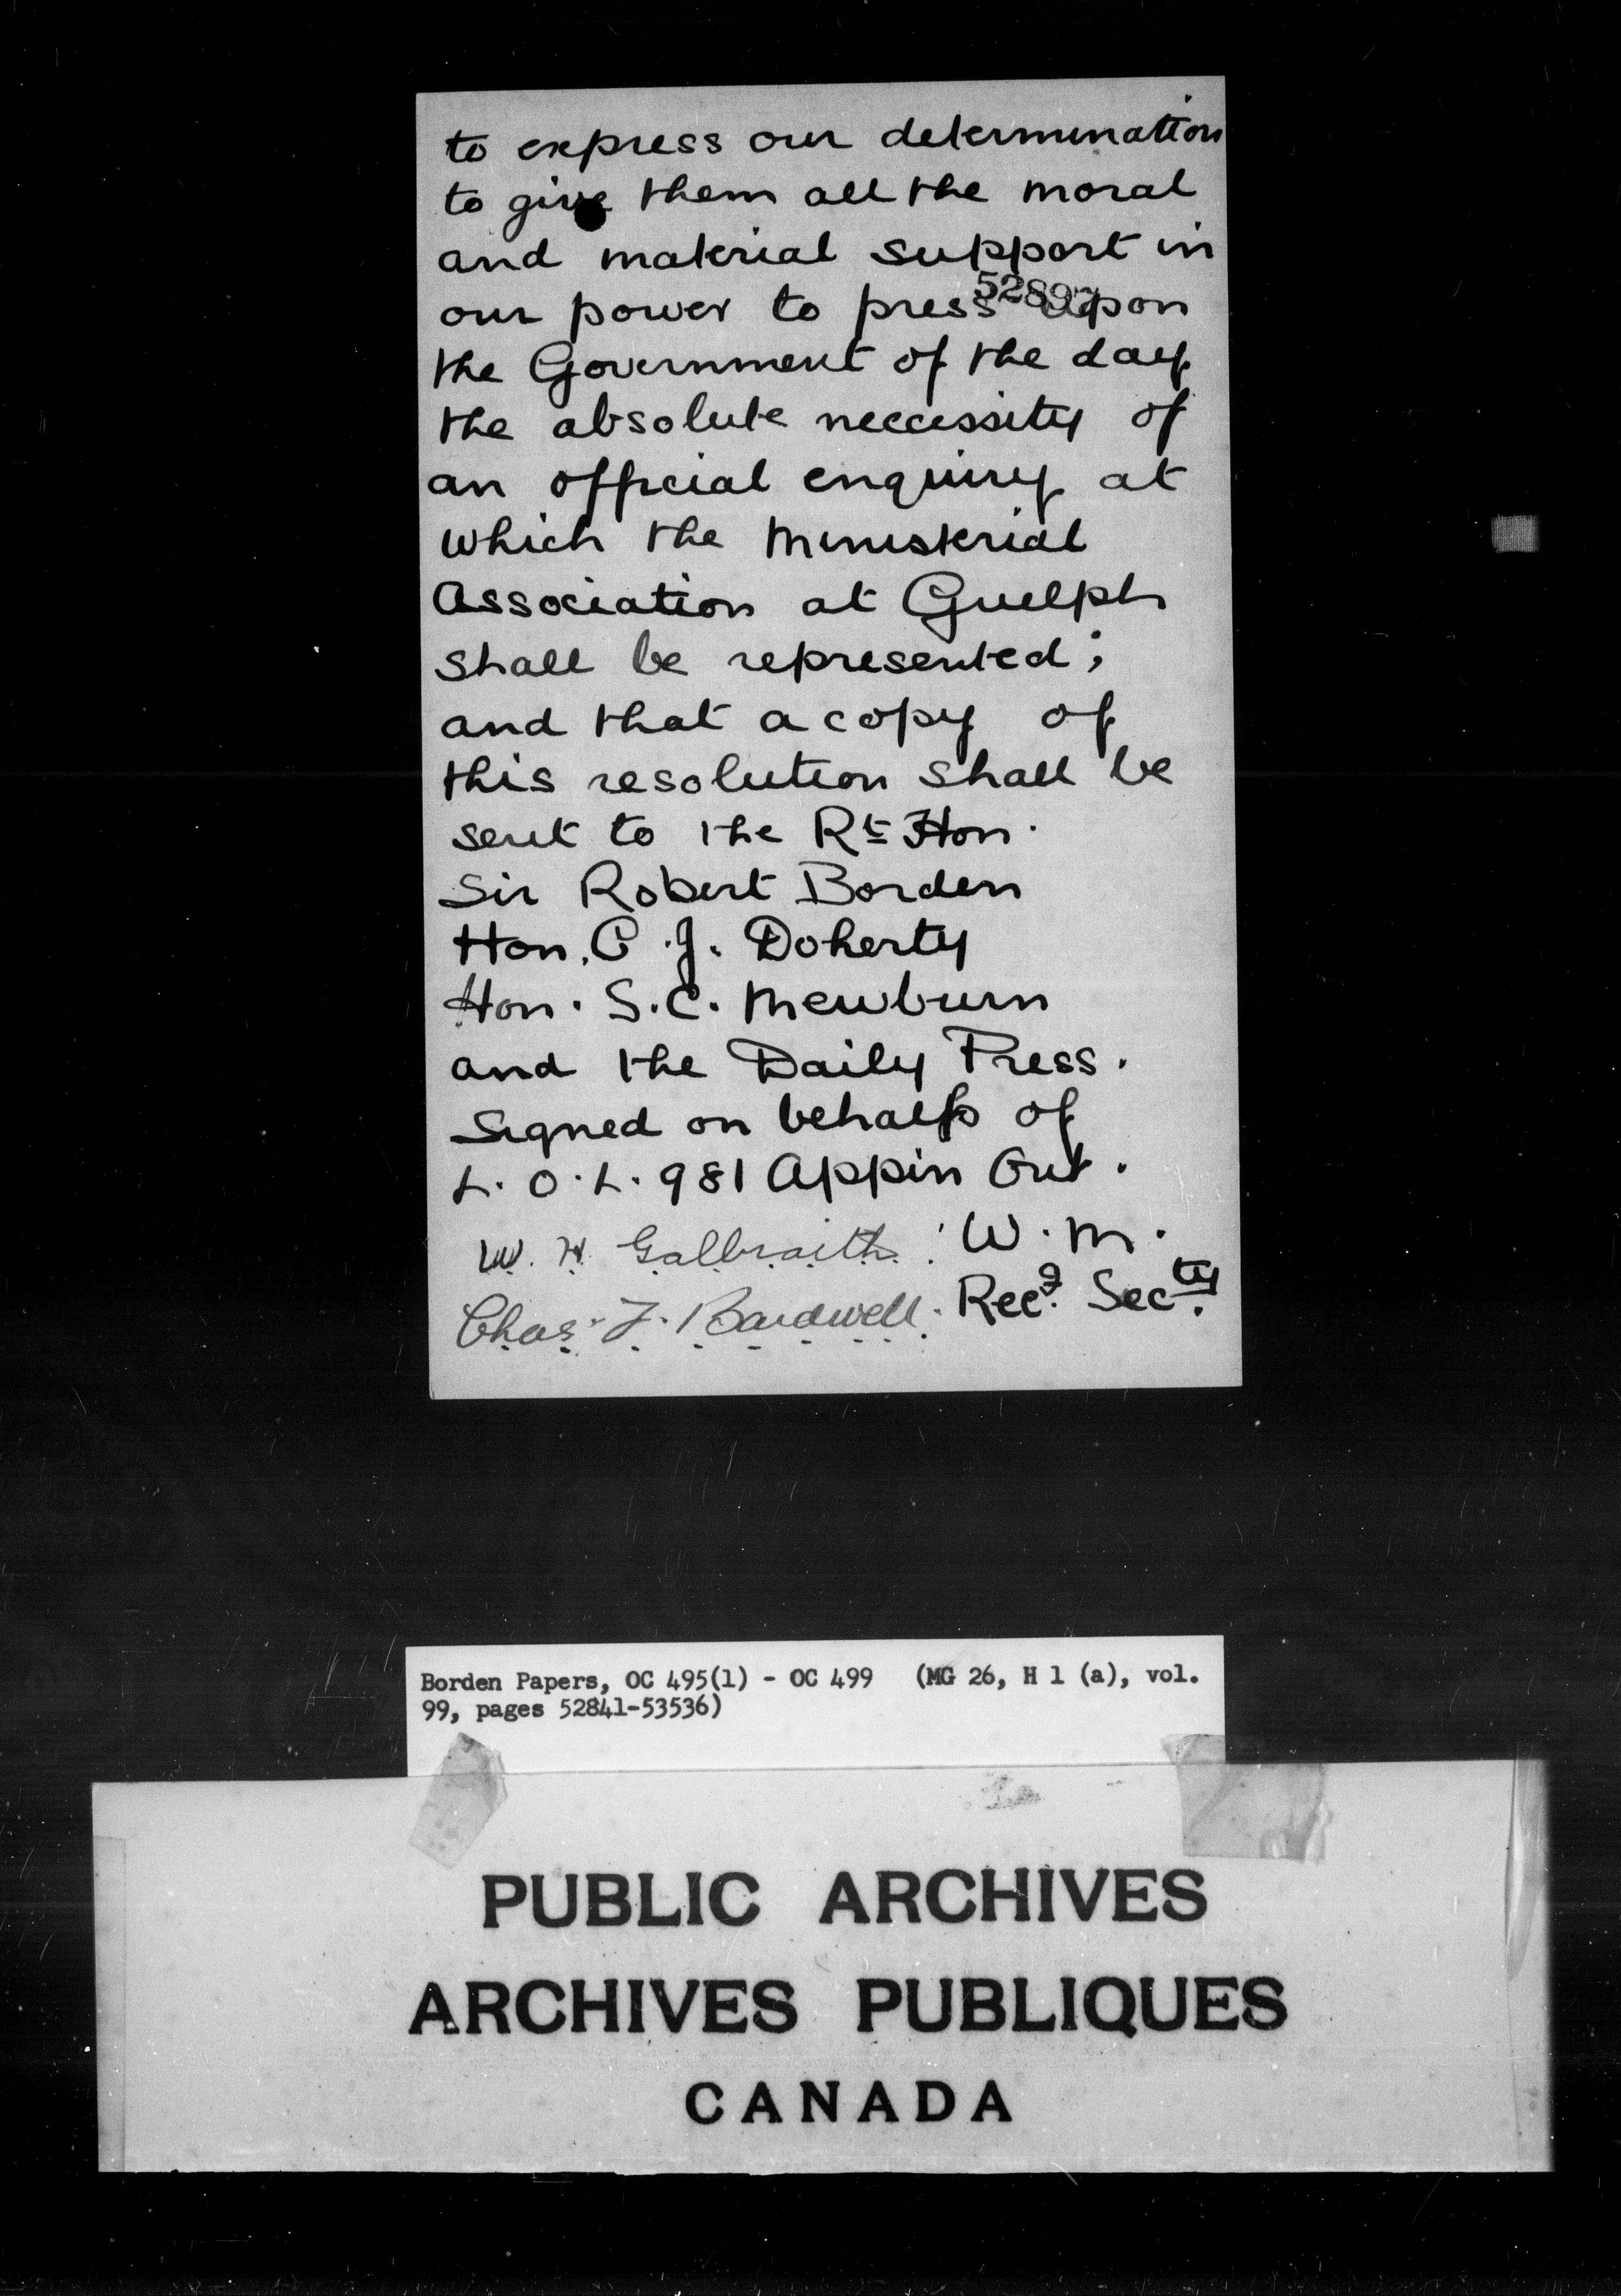 to express our determination
to give them all the moral
and material support in
our power to press upon
the Government of the day
the absolute neccessity of
an official enquiry at
which the Ministerial
Association at Guelph
shall be represented;
and that a copy of
this resolution shall be
sent to the Rt Hon.
Sir Robert Borden
Hon. C. J. Doherty
Hon. S. C. Mewburn
and the Daily Press.
Signed on behalf of
L. O. L. 981 Appin Ont.
W. H. Galbraith. W. M.
Chas. F. Bardwell. Recg. Secty.
Borden Papers, OC 495(1) - OC 499 (MG 26, H 1 (a), vol.
99, pages 52841-53536)
PUBLIC ARCHIVES
ARCHIVES PUBLIQUES
CANADA